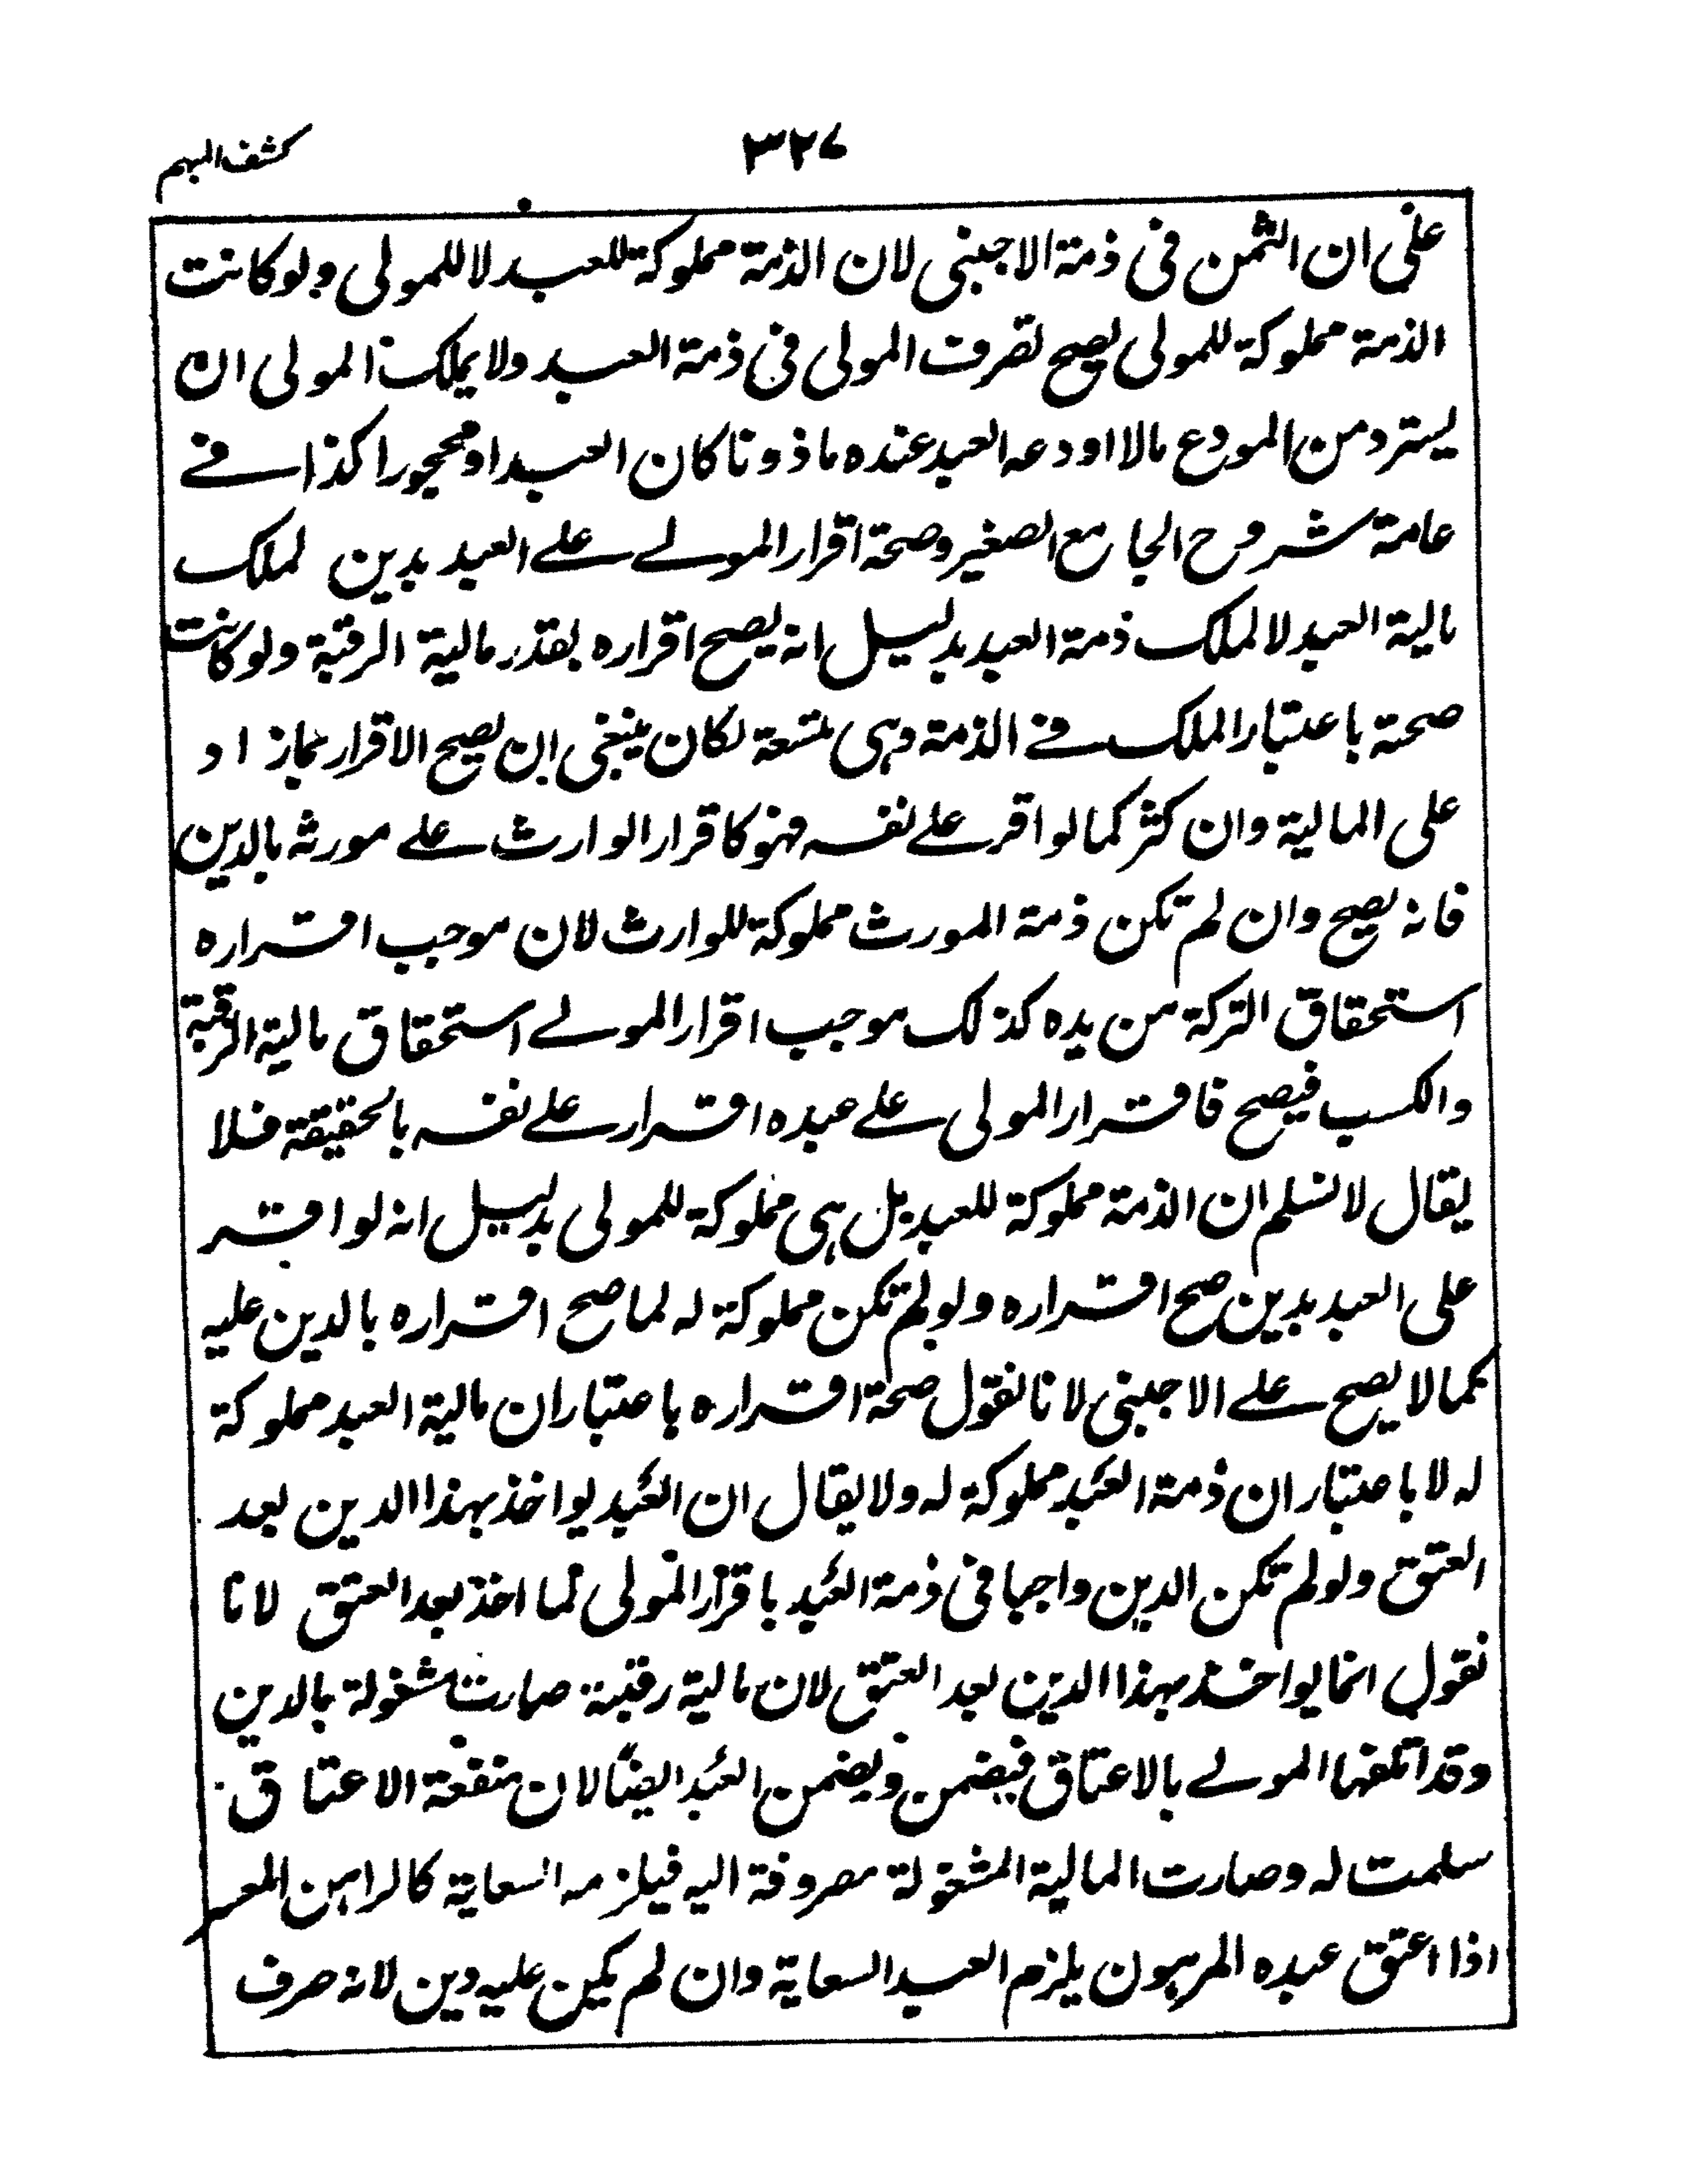 كشف المبهم
٣٢٧
على ان الثمن فى ذمة الاجنبى لان الذمة مملوكة للعبد لا للمولى ولو كانت
الذمة مملوكة للمولى يصح تصرف المولى فى ذمة العبد ولا يملك المولى ان
يسترد من المودع مالا اودعه العبد عنده ماذونا كان العبد او محجورا كذا فے
عامة شروح الجامع الصغير وصحة اقرار المولے علے العبد بدين لملك
مالية العبد لا لملك ذمة العبد بدليل انه يصح اقراره بقدر مالية الرقبة ولو كانت
صحته باعتبار الملك فے الذمة وهى متسعة لكان ينبغى ان يصح الاقرار بما زاد
على المالية وان كثر كما لو اقر علے نفسه فهو كاقرار الوارث علے مورثه بالدين
فانه يصح وان لم تكن ذمة المورث مملوكة للوارث لان موجب اقراره
استحقاق التركة من يده كذلك موجب اقرار المولے استحقاق مالية الرقبة
والكسب فيصح فاقرار المولى علے عبده اقرار علے نفسه بالحقيقة فلا
يقال لا نسلم ان الذمة مملوكة للعبد بل هى مملوكة للمولى بدليل انه لو اقر
على العبد بدين صح اقراره ولو لم تكن مملوكة له لما صح اقراره بالدين عليه
كما لا يصح علے الاجنبى لانا نقول صحة اقراره باعتبار ان مالية العبد مملوكة
له لا باعتبار ان ذمة العبد مملوكة له ولا يقال ان العبد يواخذ بهذا الدين بعد
العتق ولو لم تكن الدين واجبا فى ذمة العبد باقرار المولى لما اخذ بعد العتق لانا
نقول انما يواخذ بهذا الدين بعد العتق لان مالية رقبته صارت مشغولة بالدين
وقد اتلفها المولے بالاعتاق فيضمن ويضمن العبد ايضا لان منفعة الاعتاق
سلمت له وصارت المالية المشغولة مصروفة اليه فيلزمه السعاية كالراهن المعسر
اذا اعتق عبده المرهون يلزم العبد السعاية وان لم يكن عليه دين لانه صرف